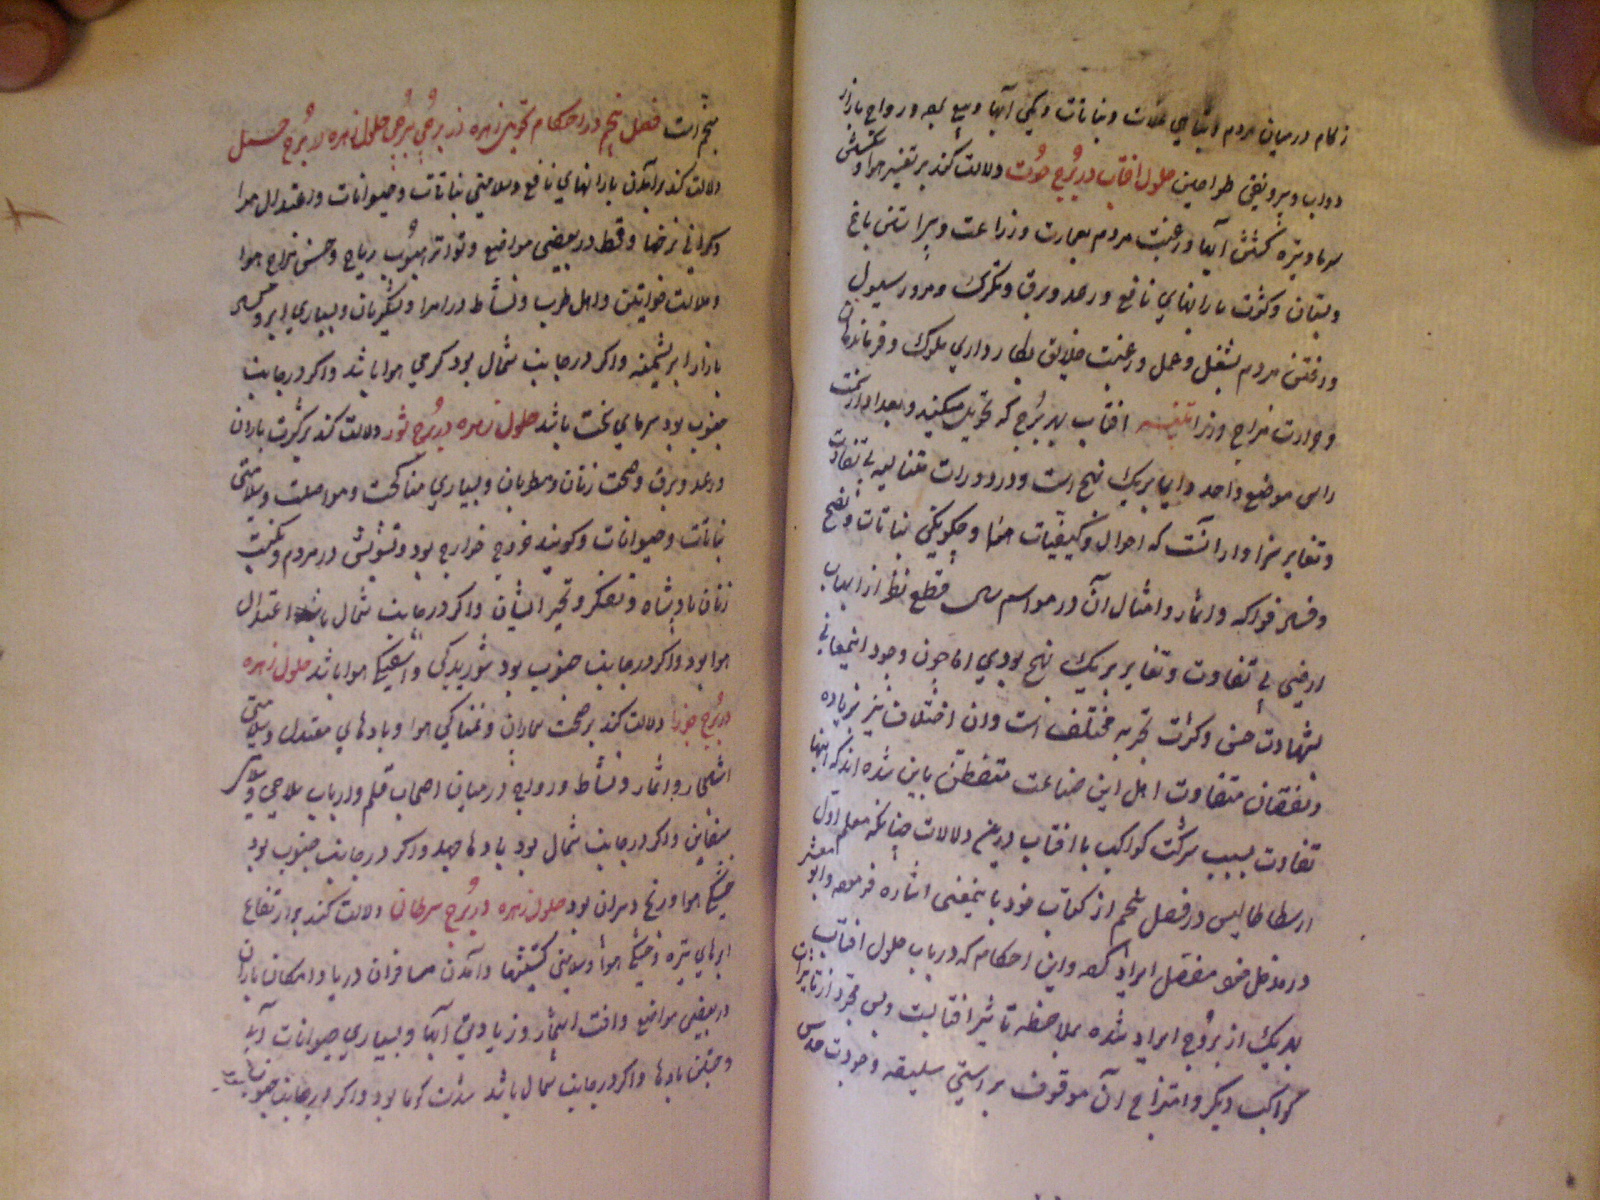 زکام در میان مردم و تباهی غلات و نباتات و کمی آبها و بیع بعد و رواج بازار
دواب و بی رونقی طراحین حلول افتاب در برج حوت دلالت کند بر تغییر هوا و شکستن
سرما و تیره گشتن آبها و رغبت مردم بعمارت و زراعت و پیراستن باغ
و بستان و کثرت بارانهای نافع و رعد و برق و تکرک و مرور سیول
و رفتن مردم بشغل و عمل و رغبت خلایق بطارداری ملوک و فرماندهان
و حرارت مزاج وزرا افتاب بهر برج که تحویل میکند و بعد از
راس موضع واحد و اینها بریک نهج است و در دورات متتالیه بی تفاوت
و تغایر سزاوار آنست که احوال و کیفیات هوا و چگونگی نباتات و نضج
و فساد فواکه و اثمار و امثال آن در مواسم قطع نظر از اسباب
ارضی بی تفاوت و تغایر بریک نهج بودی اما چون وجود اینمعانی
بشهادت حس و کثرت تجربه مختلف است و ان اختلاف نیز بزیاده
و نقصان متفاوت اهل این صناعت متفطن باین شده اند که اینها
تفاوت بسبب شرکت کواکب با افتاب درین دلالات چنانکه معلم اول
ارسطاطالیس در فصل پنجم از کتاب خود باینمعنی اشاره فرموده و ابو معشر
در مدخل خود مفصل ایراد کرده و این احکام که در باب حلول افتاب
بهریک از بروج ایراد شده بملاحظه تاثیر افتابست و بس مجرد از تاثیرات
کواکب دیگر و امتزاج آن موقوف براستی سلیقه و جودت حدس
منجم است فصل پنجم در احکام تحویل زهره از برجی ببرجی حلول زهره در برج حمل
دلالت کند بر آمدن بارانهای نافع و سلامتی نباتات و حیوانات و اعتدال هوا
و گرانی نرخها و قحط در بعضی مواضع و تواتر هبوب ریاح و حسن مزاج هوا
و ملالت خواتین و اهل طرب و نشاط در امرا و لشکریان و بسیاری ابر و
بازار ابریشمینه و اکر در جانب شمال بود گرمی هوا باشد و اکر در جانب
جنوب بود سرمای سخت باشد حلول زهره در برج ثور دلالت کند بر کثرت باران
و رعد و برق و صحت زنان و مطربان و بسیاری مناکحت و مواصلت و سلامتی
نباتات و حیوانات و گویند خروج خوارج بود و تشویش در مردم و نکبت
زنان پادشاه و تفکر و تحیر ایشان و اکر در جانب شمال باشد اعتدال
هوا بود و اکر در جانب جنوب بود شوریدگی و هوا باشد حلول زهره
در برج جوزا دلالت کند بر صحت بیماران و نمناکی هوا و بادهای معتدل و سلامتی
اشجار و اثمار و نشاط و رواج در میان اصحاب قلم و ارباب سلاحی و سلامتی
سفاین و اکر در جانب شمال بود بادها جهد و اکر در جانب جنوب بود
خشکی هوا و رنج بود حلول زهره در برج سرطان دلالت کند بر ارتفاع
ابرهای تیره و خشکی هوا و سلامتی کشتیها و آمدن مسافران دریا و امکان باران
در بعضی مواضع و افت اشجار و زیادتی آبها و بسیاری حیوانات آبی
و جستن بادها و اکر در جانب شمال باشد شدت گرما بود و اکر در جانب جنوب